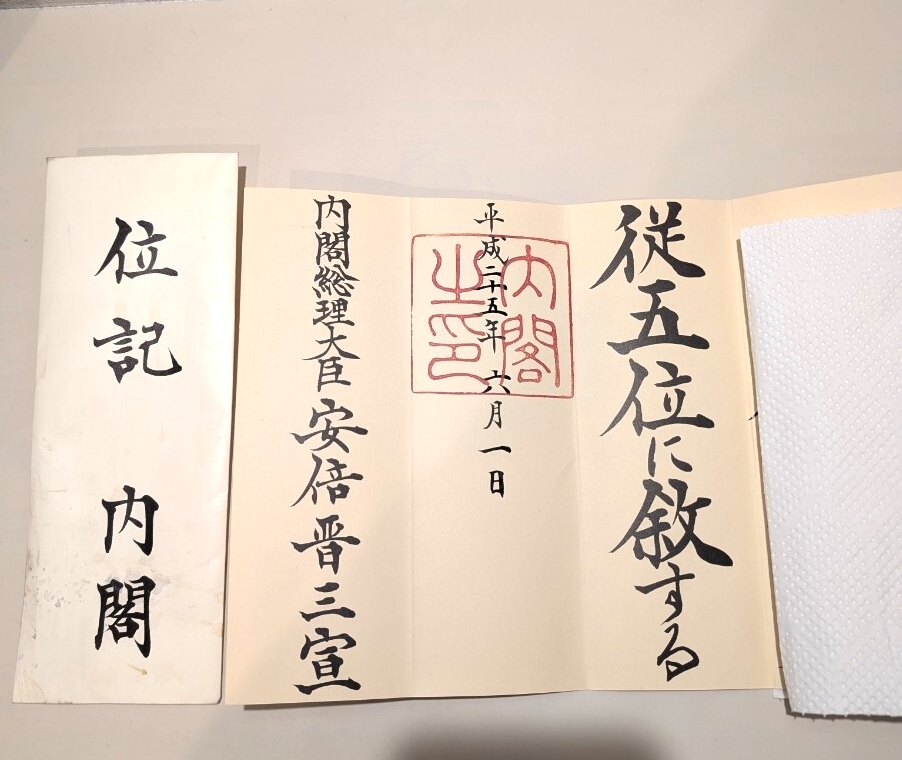 従五位に敘する
平成二十五年六月一日
内閣之印
内閣総理大臣安倍晋三宣
位記 内閣